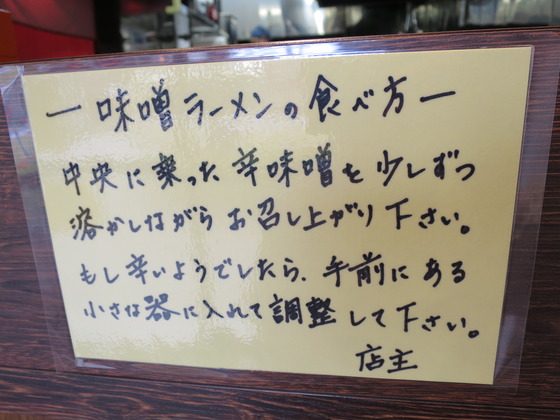 ー味噌ラーメンの食べ方ー
中央に乗った辛味噌を少しずつ
溶かしながらお召し上がり下さい。
もし辛いようでしたら、手前にある
小さな器に入れて調整して下さい。
店主